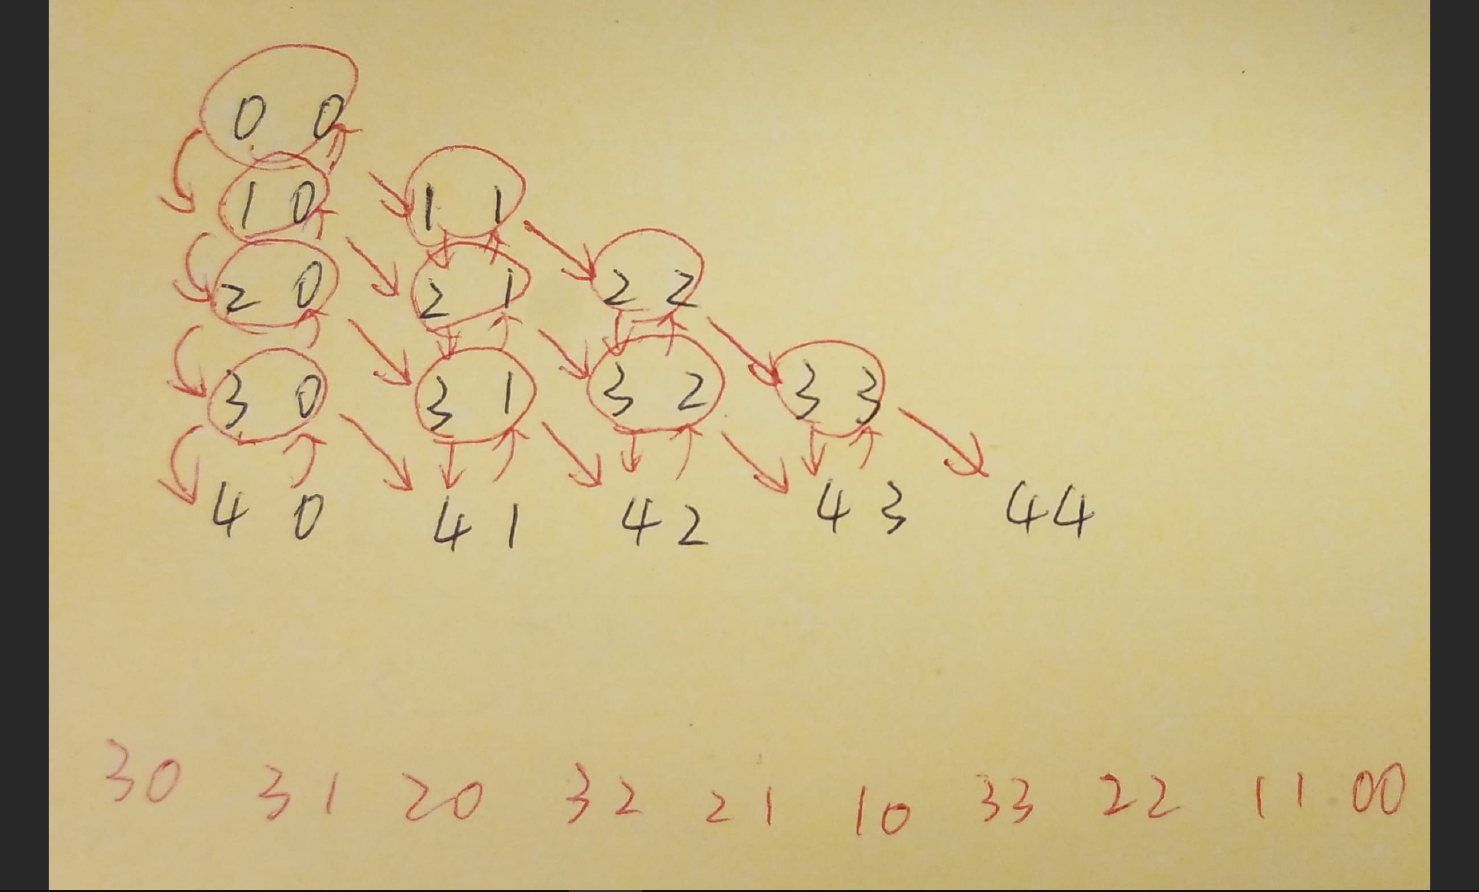 0 0
1 0 1 1
2 0 2 1 2 2
3 0 3 1 3 2 3 3
4 0 4 1 4 2 4 3 4 4
30 31 20 32 21 10 33 22 11 00